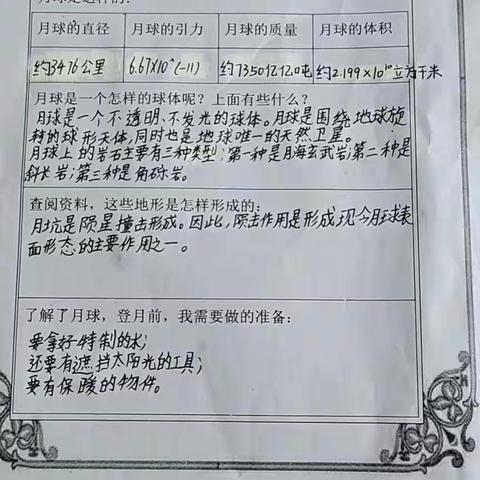 月球是这样的：
月球的直径 月球的引力 月球的质量 月球的体积
约3476公里 6.67×10^(-11) 约7350亿亿吨 约2.199×10¹⁰立方千米
月球是一个怎样的球体呢？上面有些什么？
月球是一个不透明、不发光的球体。月球是围绕地球旋
转的球形天体，同时也是地球唯一的天然卫星。
月球上的岩石主要有三种类型：第一种是月海玄武岩；第二种是
斜长岩；第三种是角砾岩。
查阅资料，这些地形是怎样形成的：
月坑是陨星撞击形成。因此，陨击作用是形成现今月球表
面形态的主要作用之一。
了解了月球，登月前，我需要做的准备：
要拿好特制的水；
还要有遮挡太阳光的工具；
要有保暖的物件。